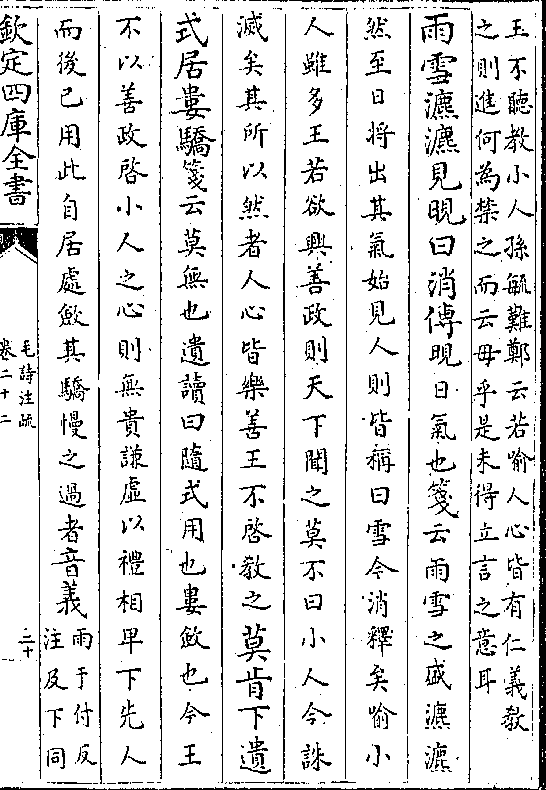 王不聽教小人孫毓難鄭云若喻人心皆有仁義教
之則進何為禁之而云毋乎是未得立言之意耳
雨雪瀌瀌見晛曰消傳晛日氣也箋云雨雪之盛瀌瀌
然至日將出其氣始見人則皆稱曰雪今消釋矣喻小
人雖多王若欲興善政則天下聞之莫不曰小人今誅
滅矣其所以然者人心皆樂善王不啓教之莫肯下遺
式居婁驕箋云莫無也遺讀曰隨式用也婁斂也今王
不以善政啓小人之心則無貴謙虛以禮相卑下先人
而後已用此自居處斂其驕慢之過者音義雨于付反
注及下同
欽定四庫全書
毛詩注疏
卷二十二
二十